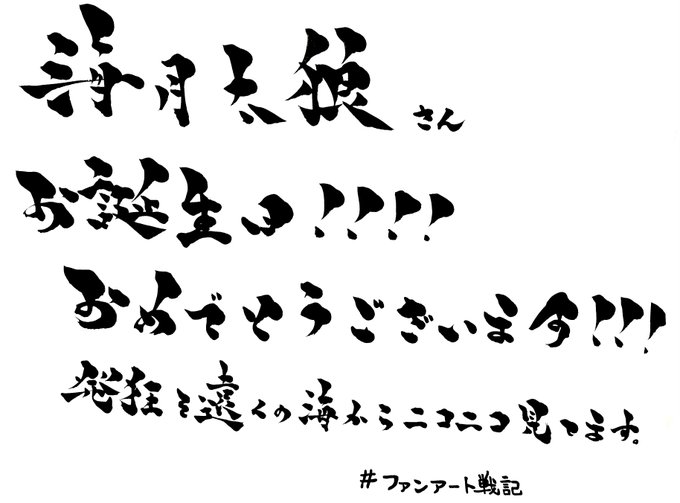 海月天狼さん
お誕生日!!!!
おめでとうございます!!!
発狂を遠くの海からニコニコ見てます。
#ファンアート戦記